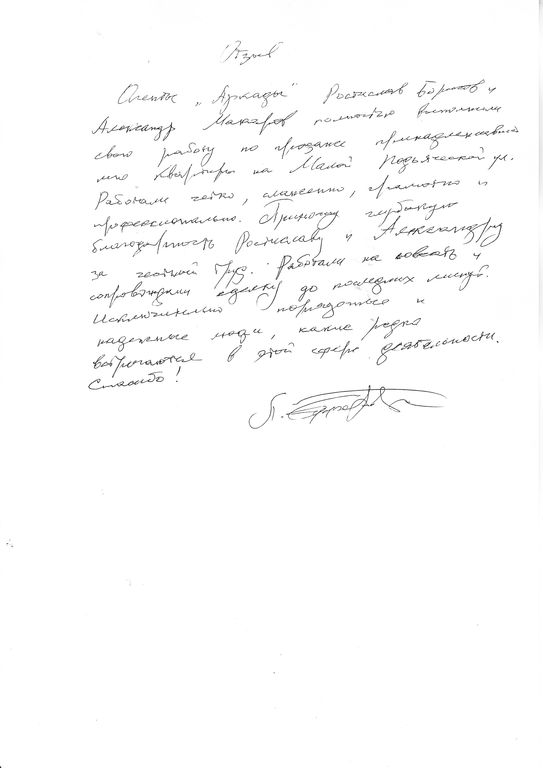 Отзыв
Агенты „Аркады" Ростислав Борисов и
Александр Макаров полностью выполнили
свою работу по продаже принадлежавшей
мне квартиры на Малой Подьяческой ул.
Работали четко, слаженно, грамотно и
профессионально. Приношу глубокую
благодарность Ростиславу и Александру
за честный труд. Работали на совесть и
сопровождали сделку до последних минут.
Исключительно порядочные и
надежные люди, какие редко
встречаются в этой сфере деятельности.
Спасибо!